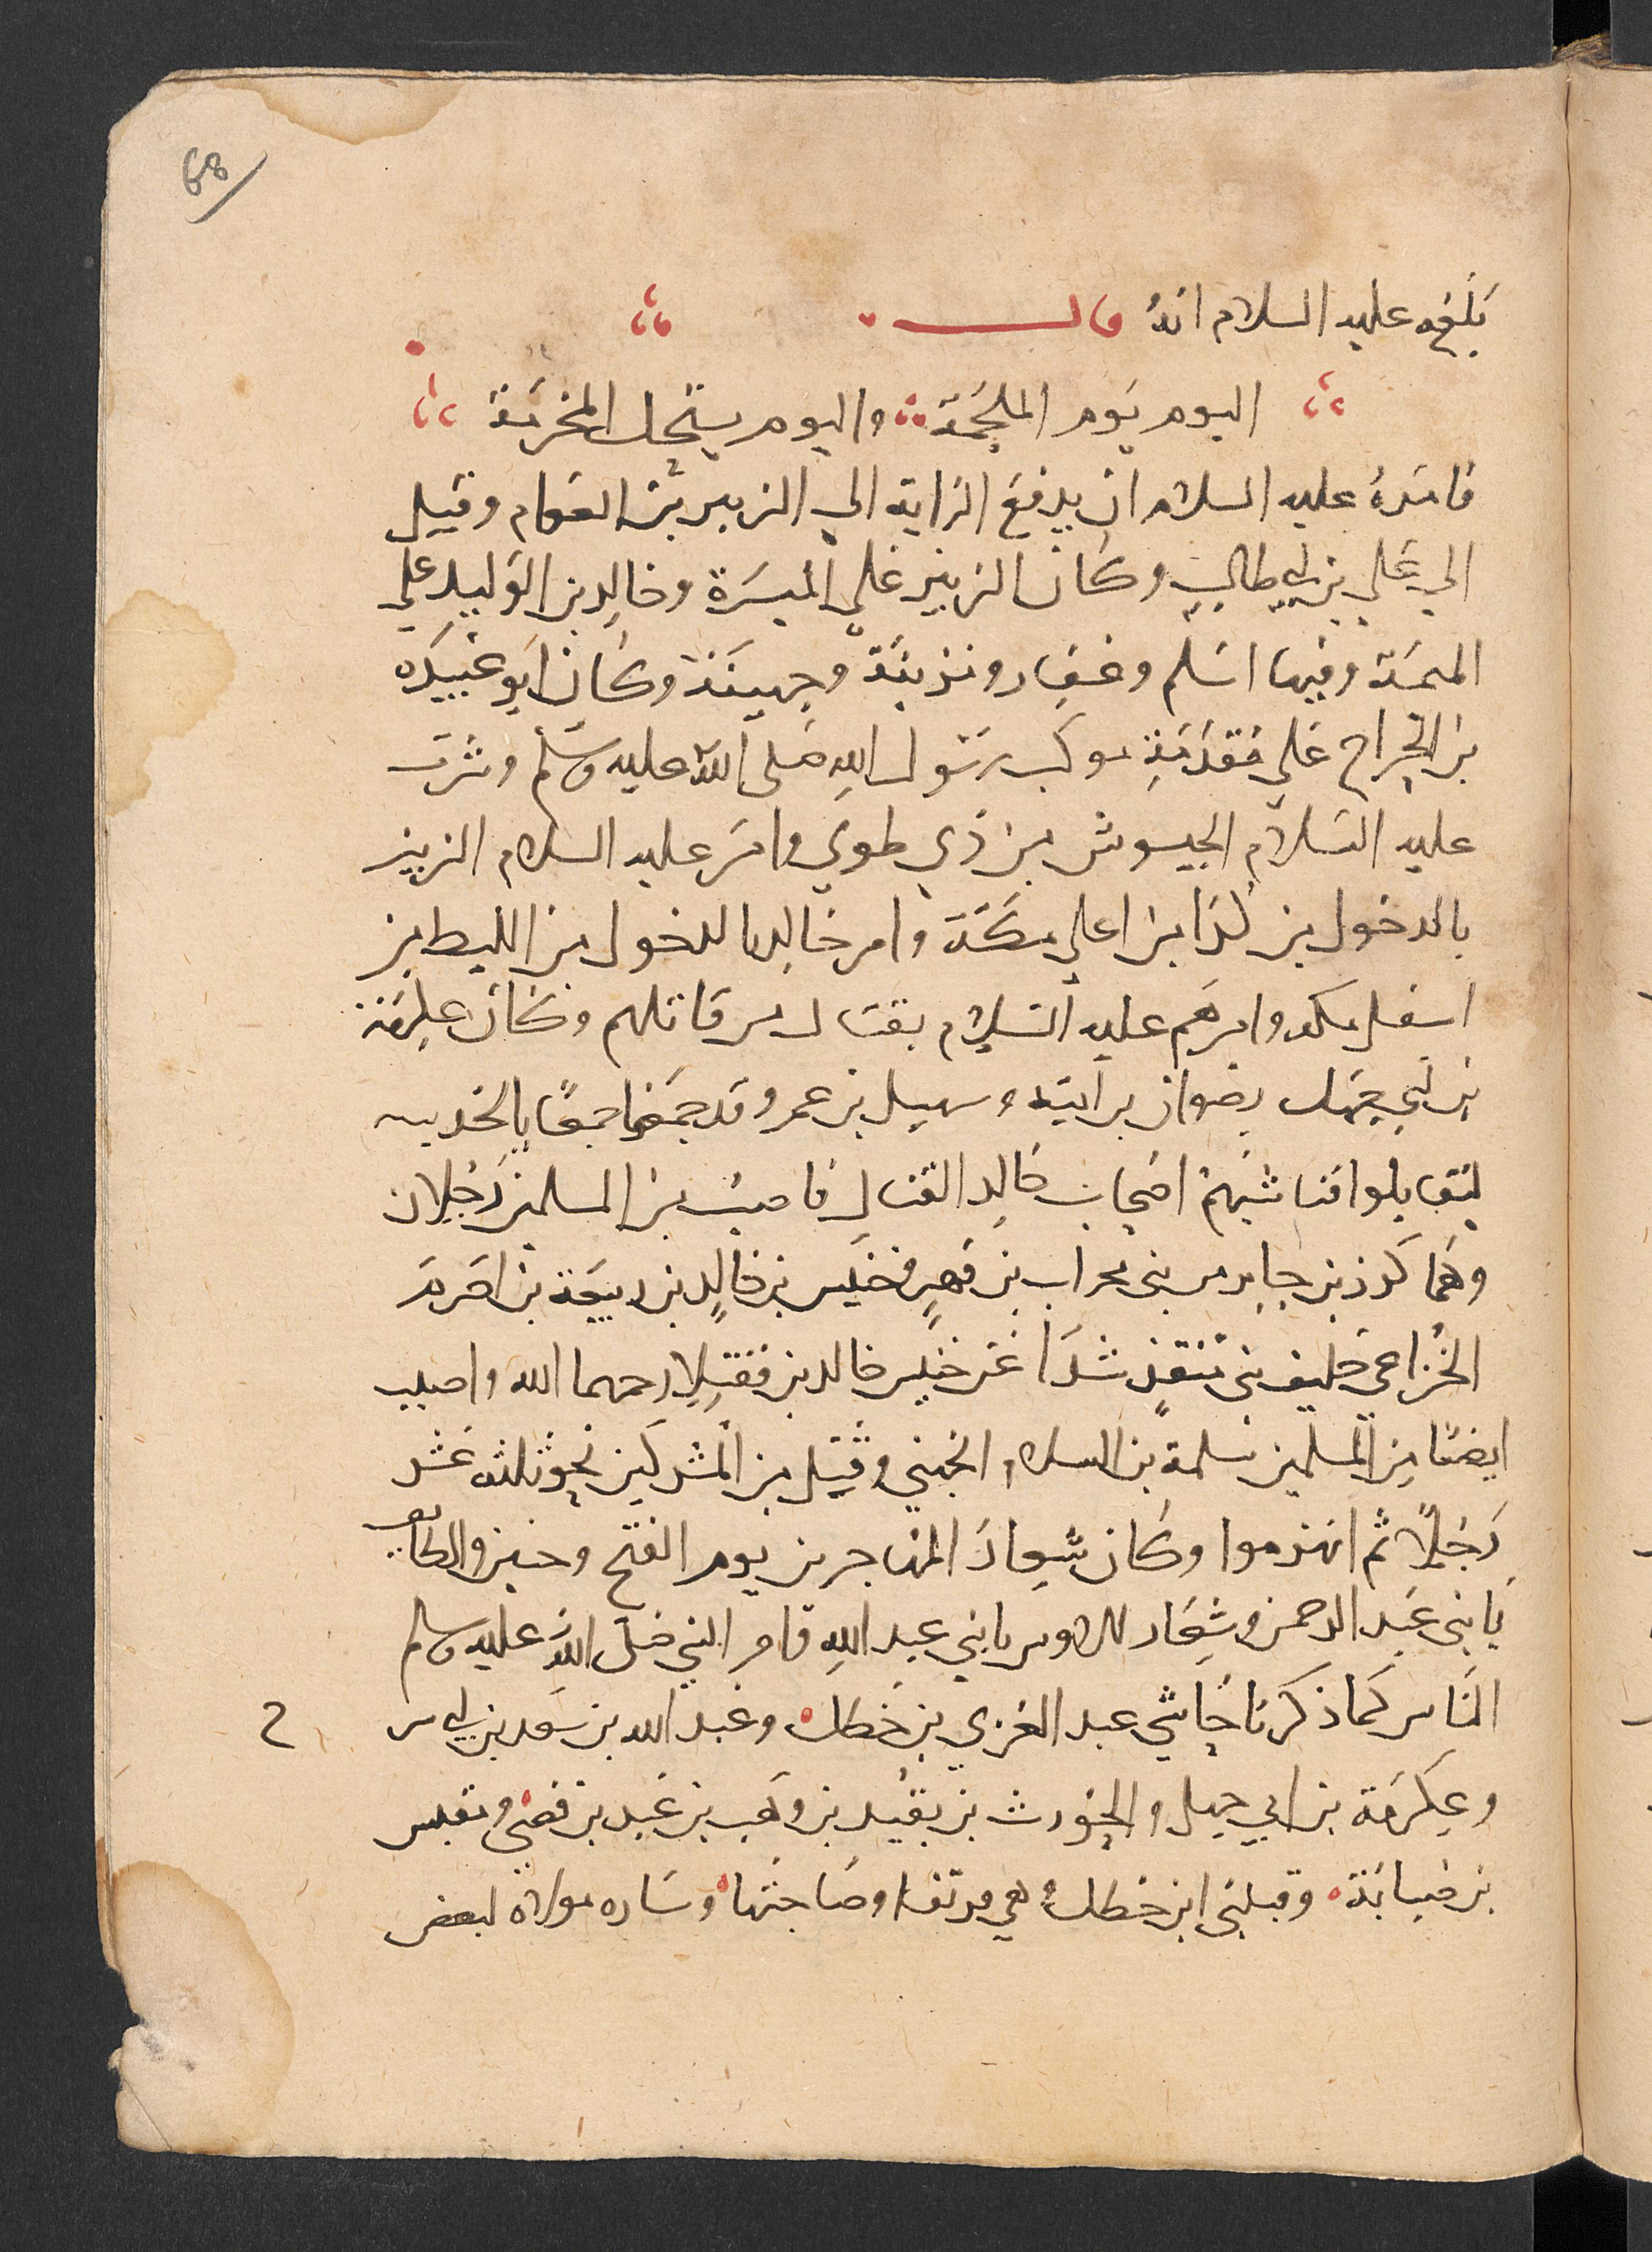 68
بلغه عليه السلام انه قال
اليوم يوم الملحمة واليوم يستحل المحرمة
فامره عليه السلام ان يدفع الراية الي الزبير بن العوام وقيل
الي علي بن ابي طالب وكان الزبير علي الميسرة وخالد بن الوليد علي
الميمنة وفيها اسلم وغفار ومزينة وجهينة وكان ابو عبيده
بن الجراح علي مقدمة موكب رسول الله صلى الله عليه وسلم وسرب
عليه السلام الجيوش من ذي طوي وامر عليه السلام الزبير
بالدخول من كدا من اعلي مكة وامر خالد بالدخول من الليط من
اسفل مكه وامرهم عليه السلام بقتال من قاتلهم وكان عكرمة
بن ابي جهل وصفوان بن امية وسهيل بن عمرو قد جمعوا جمعا بالخندمه
ليقاتلوا فناشبهم اصحاب خالد القتال فاصيب من المسلمين رجلان
وهما كرز بن جابر من بني محارب بن فهر وخنيس بن خالد بن ربيعة بن اصرم
الخزاعي حليف بني منقذ شذا عن خيل خالد بن فقتلا رحمهما الله واصيب
ايضا من المسلمين سلمة بن الميلاء الجهني وقتل من المشركين نحو ثلثه عشر
رجلا ثم انهزموا وكان شعار المهاجرين يوم الفتح وحنين والطايف
يا بني عبد الرحمن وشعار الاوس يا بني عبد الله قامر النبي صلى الله عليه وسلم
الناس كما ذكرنا حاشي عبد العزي بن خطل وعبد الله بن سعد بن ابي سرح
وعكرمة بن ابي جهل والحويرث بن نقيد بن وهب بن عبد بن قصي ومقيس
بن ضبابة وقينتي ابن خطل وهي فرتنا وصاحبتها وساره مولاة لبعض